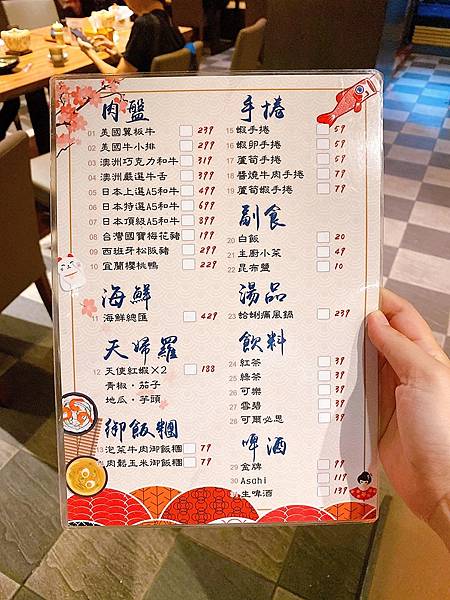 肉盤
01 美國翼板牛 239
02 美國牛小排 299
03 澳洲巧克力和牛 319
04 澳洲嚴選牛舌 399
05 日本上選A5和牛 499
06 日本特選A5和牛 699
07 日本頂級A5和牛 399
08 台灣國寶梅花豬 199
09 西班牙松阪豬 299
10 宜蘭櫻桃鴨 229
海鮮
11 海鮮總匯 429
天婦羅
12 天使紅蝦×2 188
青椒·茄子
地瓜·芋頭
御飯糰
13 泡菜牛肉御飯糰 79
肉鬆玉米御飯糰 79
手捲
15 蝦手捲 59
16 蝦卵手捲 59
17 蘆筍手捲 59
18 醬燒牛肉手捲 79
19 蘆筍蝦手捲 79
副食
20 白飯 20
21 主廚小菜 49
22 昆布鹽 10
湯品
23 蛤蜊痛風鍋 239
飲料
24 紅茶 39
25 綠茶 39
26 可樂 39
27 雪碧 39
28 可爾必思 39
啤酒
29 金牌 99
30 Asahi 119
生啤酒 139